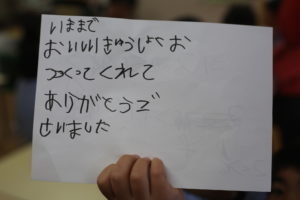 いままで
おいいいきゅうしょくお
つくってくれて
ありがとうご
ざいました